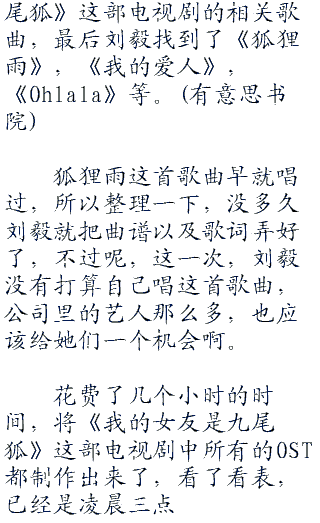 尾狐》这部电视剧的相关歌
曲，最后刘毅找到了《狐狸
雨》，《我的爱人》，
《Ohlala》等。(有意思书
院)
狐狸雨这首歌曲早就唱
过，所以整理一下，没多久
刘毅就把曲谱以及歌词弄好
了，不过呢，这一次，刘毅
没有打算自己唱这首歌曲，
公司里的艺人那么多，也应
该给她们一个机会啊。
花费了几个小时的时
间，将《我的女友是九尾
狐》这部电视剧中所有的OST
都制作出来了，看了看表，
已经是凌晨三点